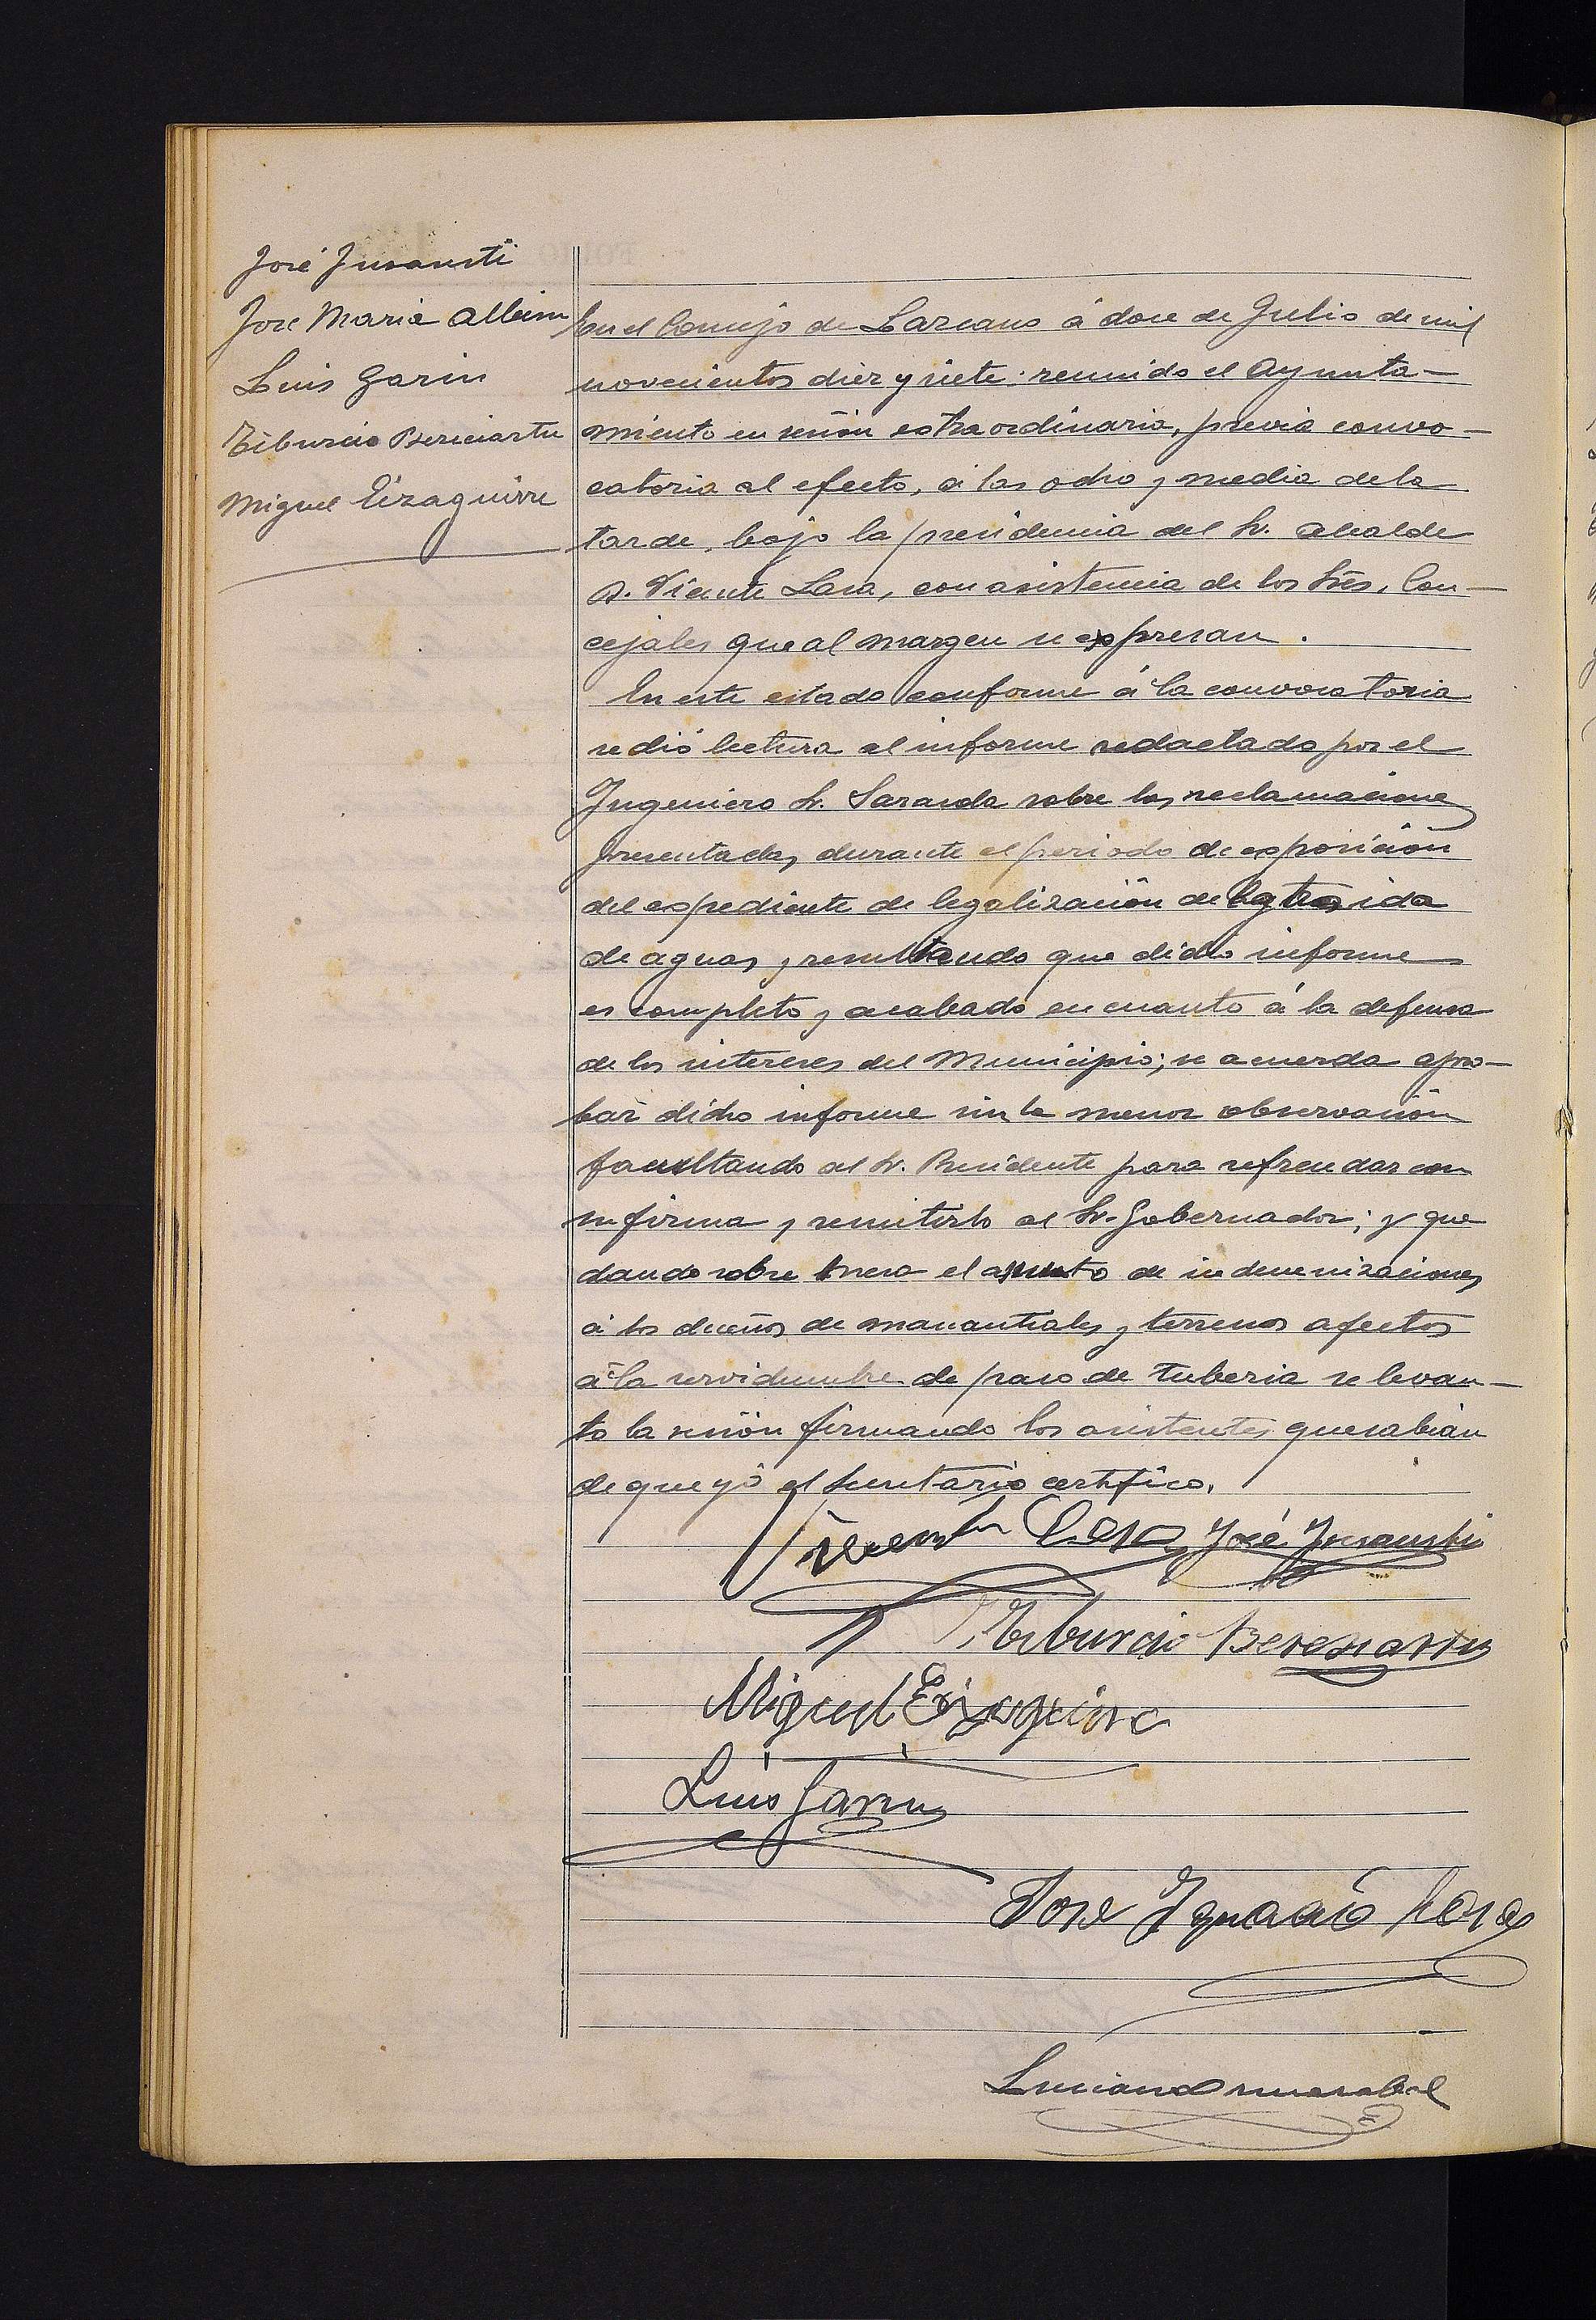 José Insausti
José Maria Albisu
Luis Garin
Tiburcio Bereciartu
Miguel Eizaguirre
En el Concejo de Lazcano á doce de Julio de mil
novecientos diez y siete: reunido el Ayunta-
miento en sesión extraordinaria, previa convo-
catoria al efecto, á las ocho y media de la
tarde, bajo la presidencia del Sr. Alcalde
D. Vicente Lasa, con asistencia de los Srēs. Con-
cejales que al margen se expresan.
En este estado conforme á la convocatoria
se dió lectura al informe redactado por el
Ingeniero Sr. Sarasola sobre las reclamaciones
presentadas durante el periodo de exposición
del expediente de legalización de la traida
de aguas y resultando que dicho informe
es completo y acabado en cuanto á la defensa
de los intereses del Municipio; se acuerda apro-
bar dicho informe sin la menor observación
facultando al Sr. Presidente para refrendar con
su firma y remitirlo al Sr. Gobernador; y que
dando sobre mesa el asunto de indemnizaciones
á los dueños de manantiales y terrenos afectos
á la servidumbre de paso de tuberia se levan-
to la sesión firmando los asistentes que sabían
de que yó el Secretario certifico.
Vicente Lasa José Insausti
Tiburcio Bereciartu
Miguel Eizaguirre
Luis Garin
José Ygnacio Lasa
Luciano